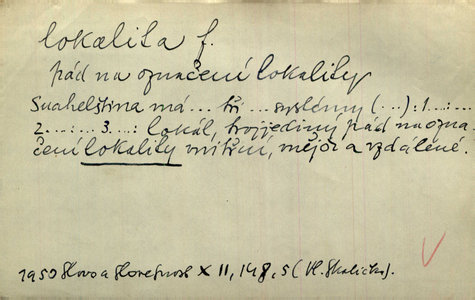 lokalita f.
pád na označení lokality
Suahelština má ... tři ... systémy (...): 1...: ...
2...:...3...: lokál, trojjediný pád na ozna
čení lokality vnitřní, vnější a vzdálené.
1950 Slovo a slovesnost XII, 148, 5 (Vl. Skalička).